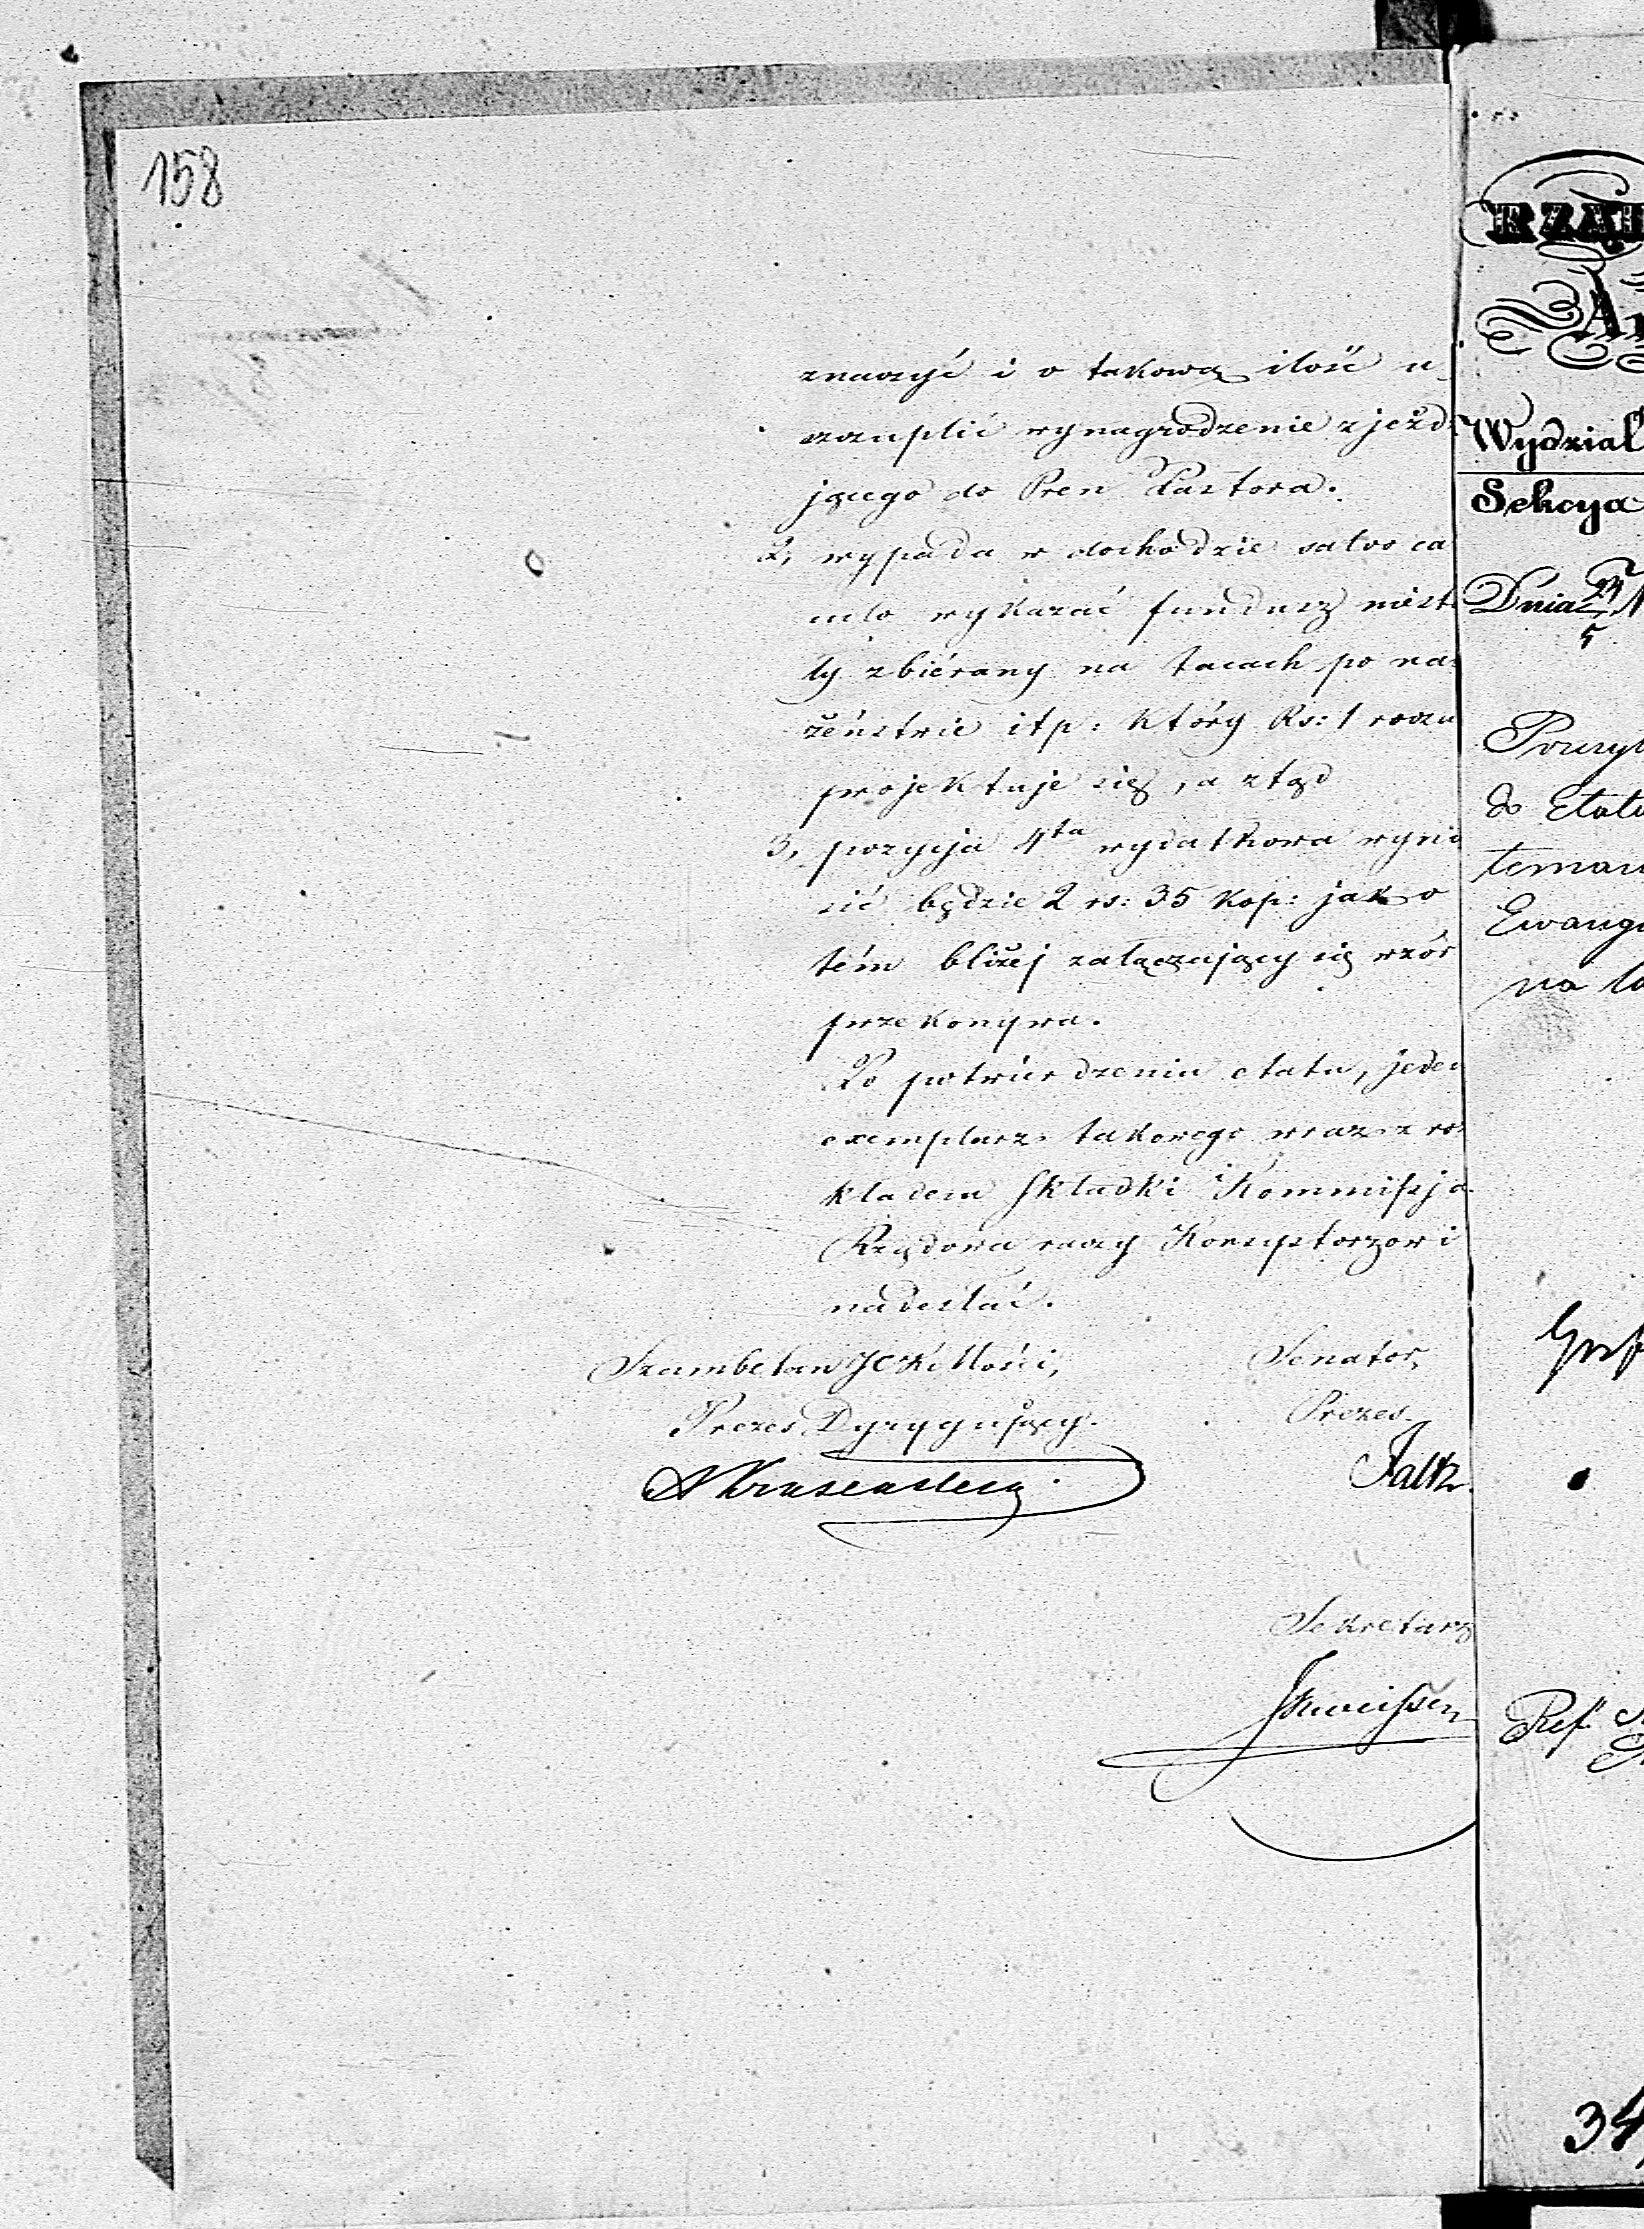 158
znaczyć i o takową ilość u-
szczuplić wynagrodzenie zjeżd-
jącego do Pren Pastora.
2, wypada w dochodzie salvo cal
culo wykazać fundusz niesta
ły zbiérany na tacach po na-
żéństwie itp: który Rs: 1 roczn
projektuje się, a ztąd
3, pozycja 4ta wydatkowa wyno
sić będzie 2 rs: 35 kop: jak o
tém bliżéj załączający się wzór
przekonywa.
Po potwierdzeniu etatu, jeden
exemplarz takowego wraz z roz
kładem składki Kommissja
Rządowa raczy Konsystorzowi
nadesłać.
Szambelan JCK Mości, Senator,
Prezes Dyrygujący. Prezes.
Faltz.
Sekretarz
RZĄD
Wydział
Sekcya
Dnia
do Etatu
Ewange
na
Ref.
34